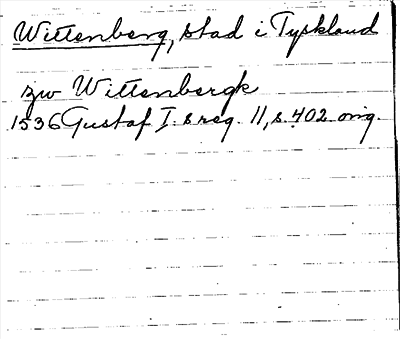 Wittenberg, stad i Tyskland
zw Wittenbergk
1536 Gustaf I:s reg. 11, s. 402 orig.